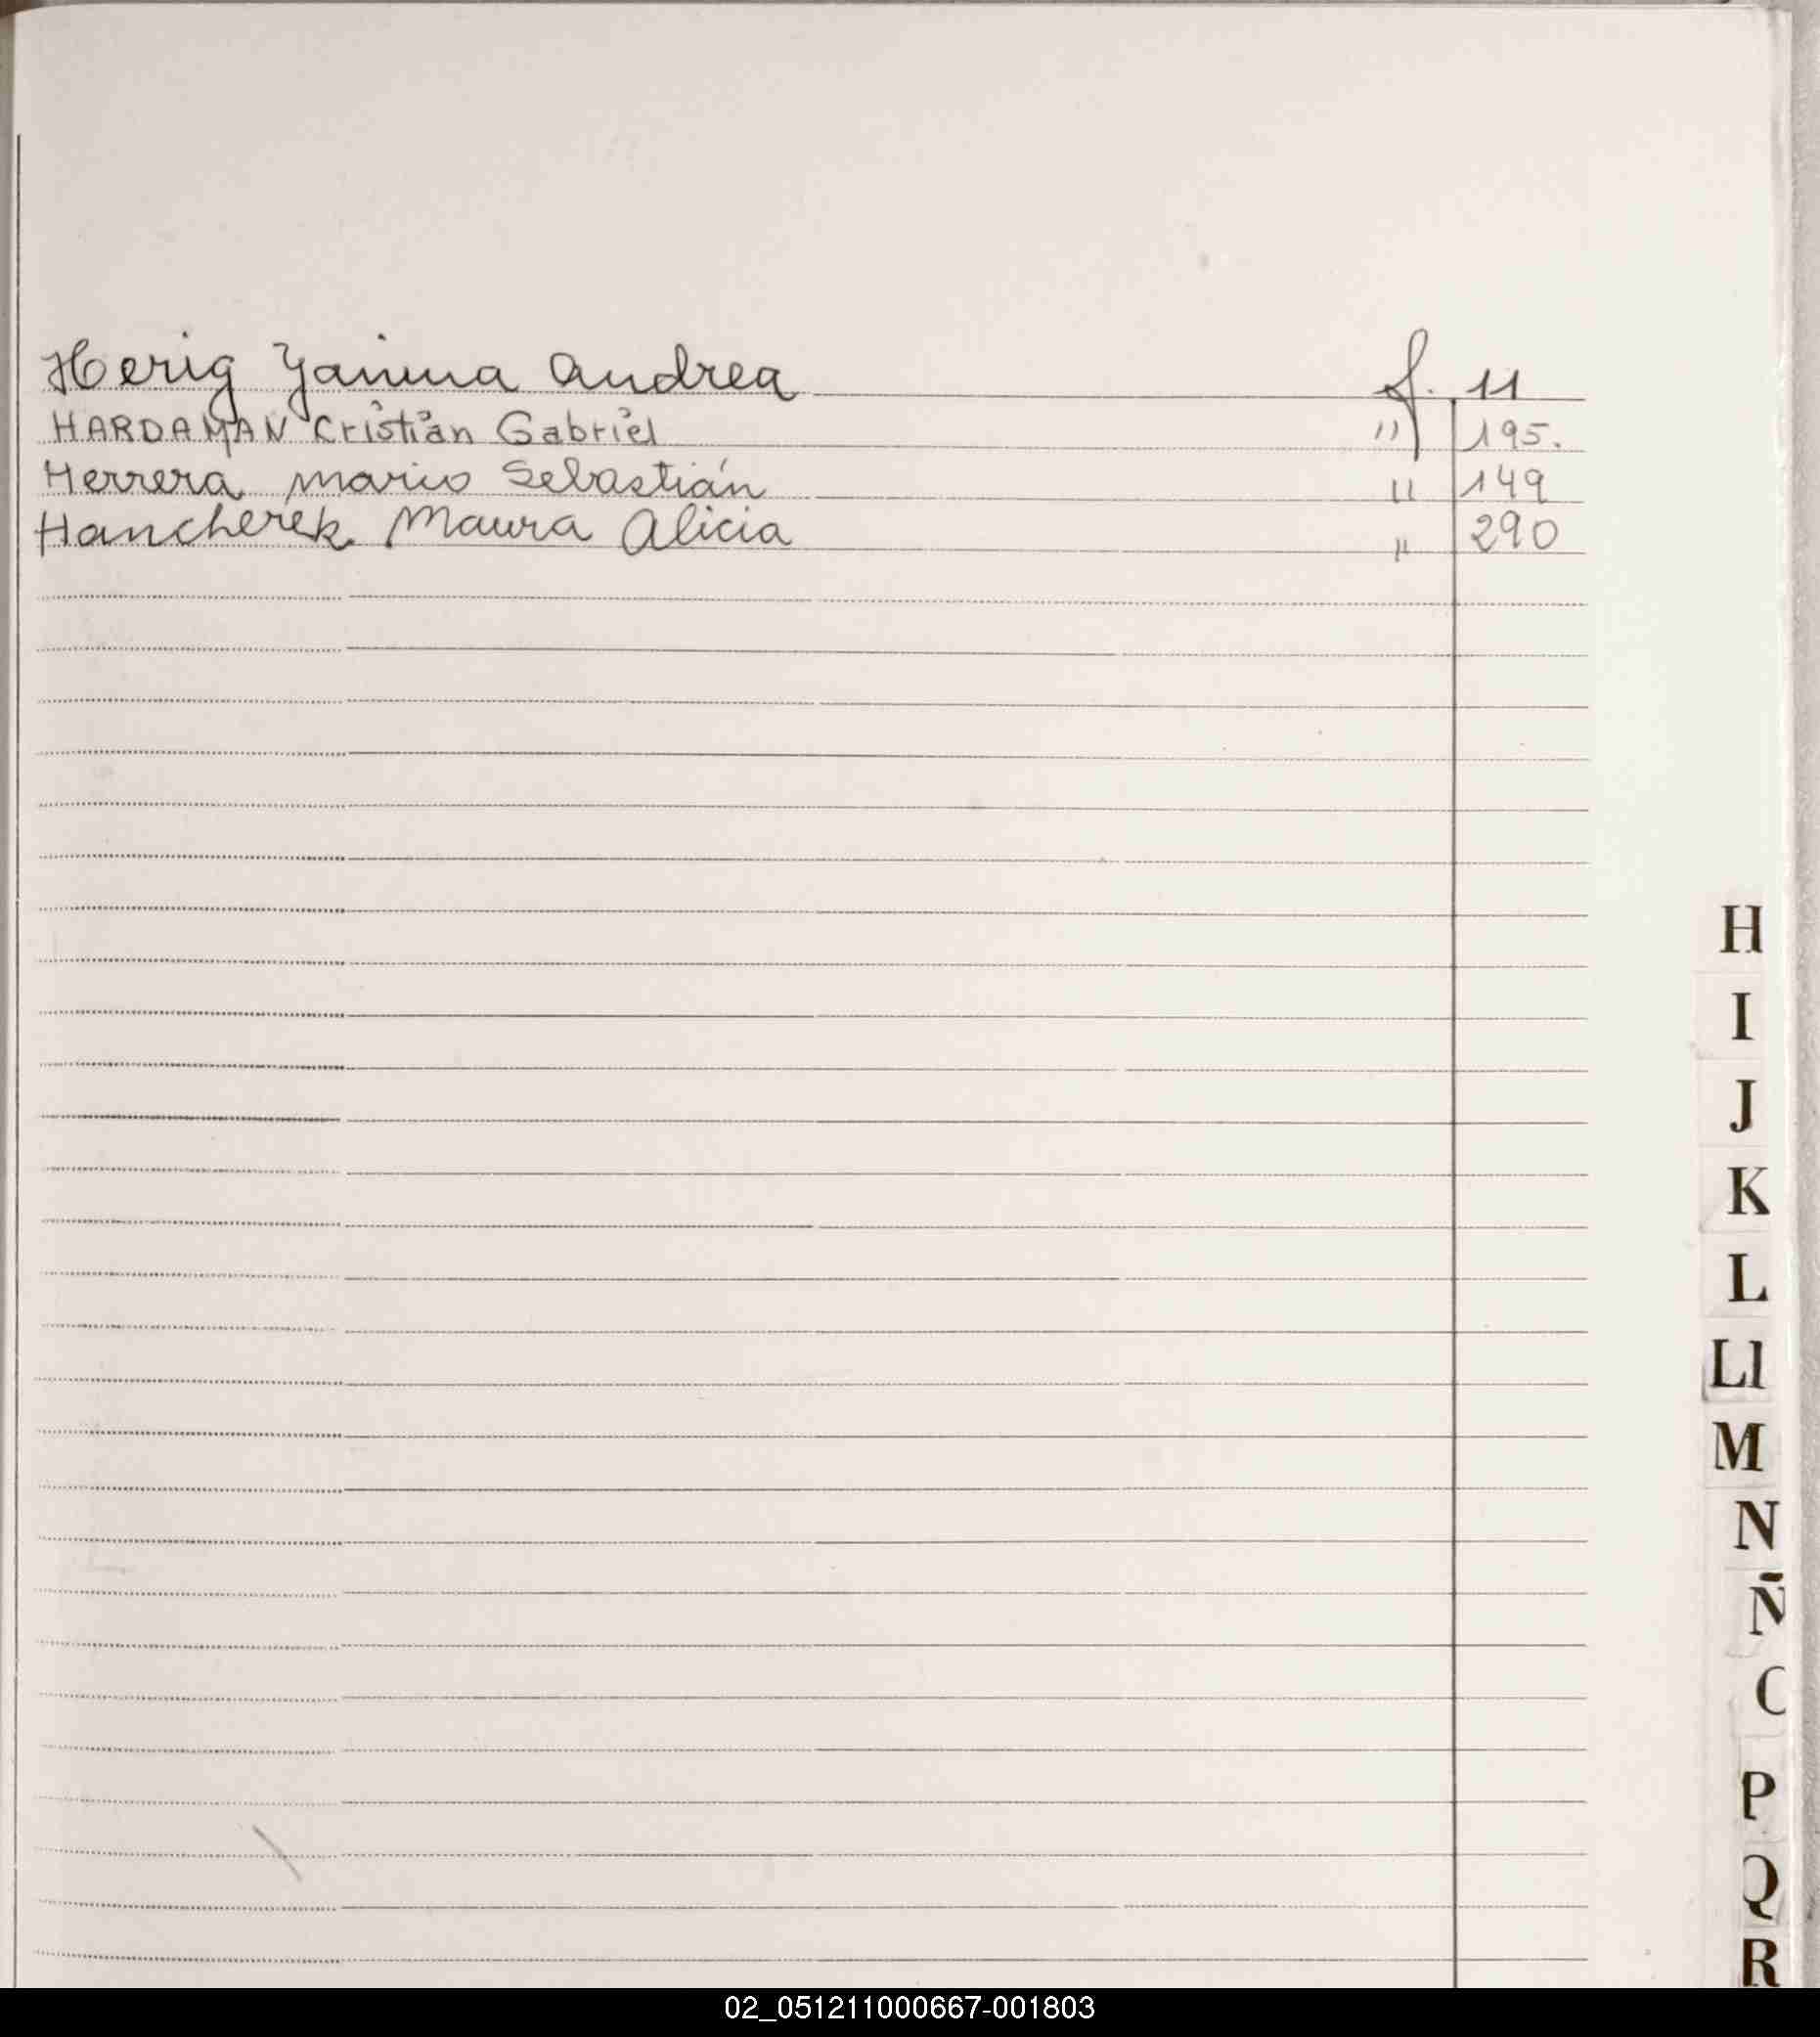 Herig Yanina Andrea f. 11
HARDAMAN Cristian Gabriel " 195.
Herrera Mario Sebastián " 149
Hancherek Maura Alicia " 290
H
I
J
K
L
Ll
M
N
Ñ
O
P
Q
R
02_051211000667-001803